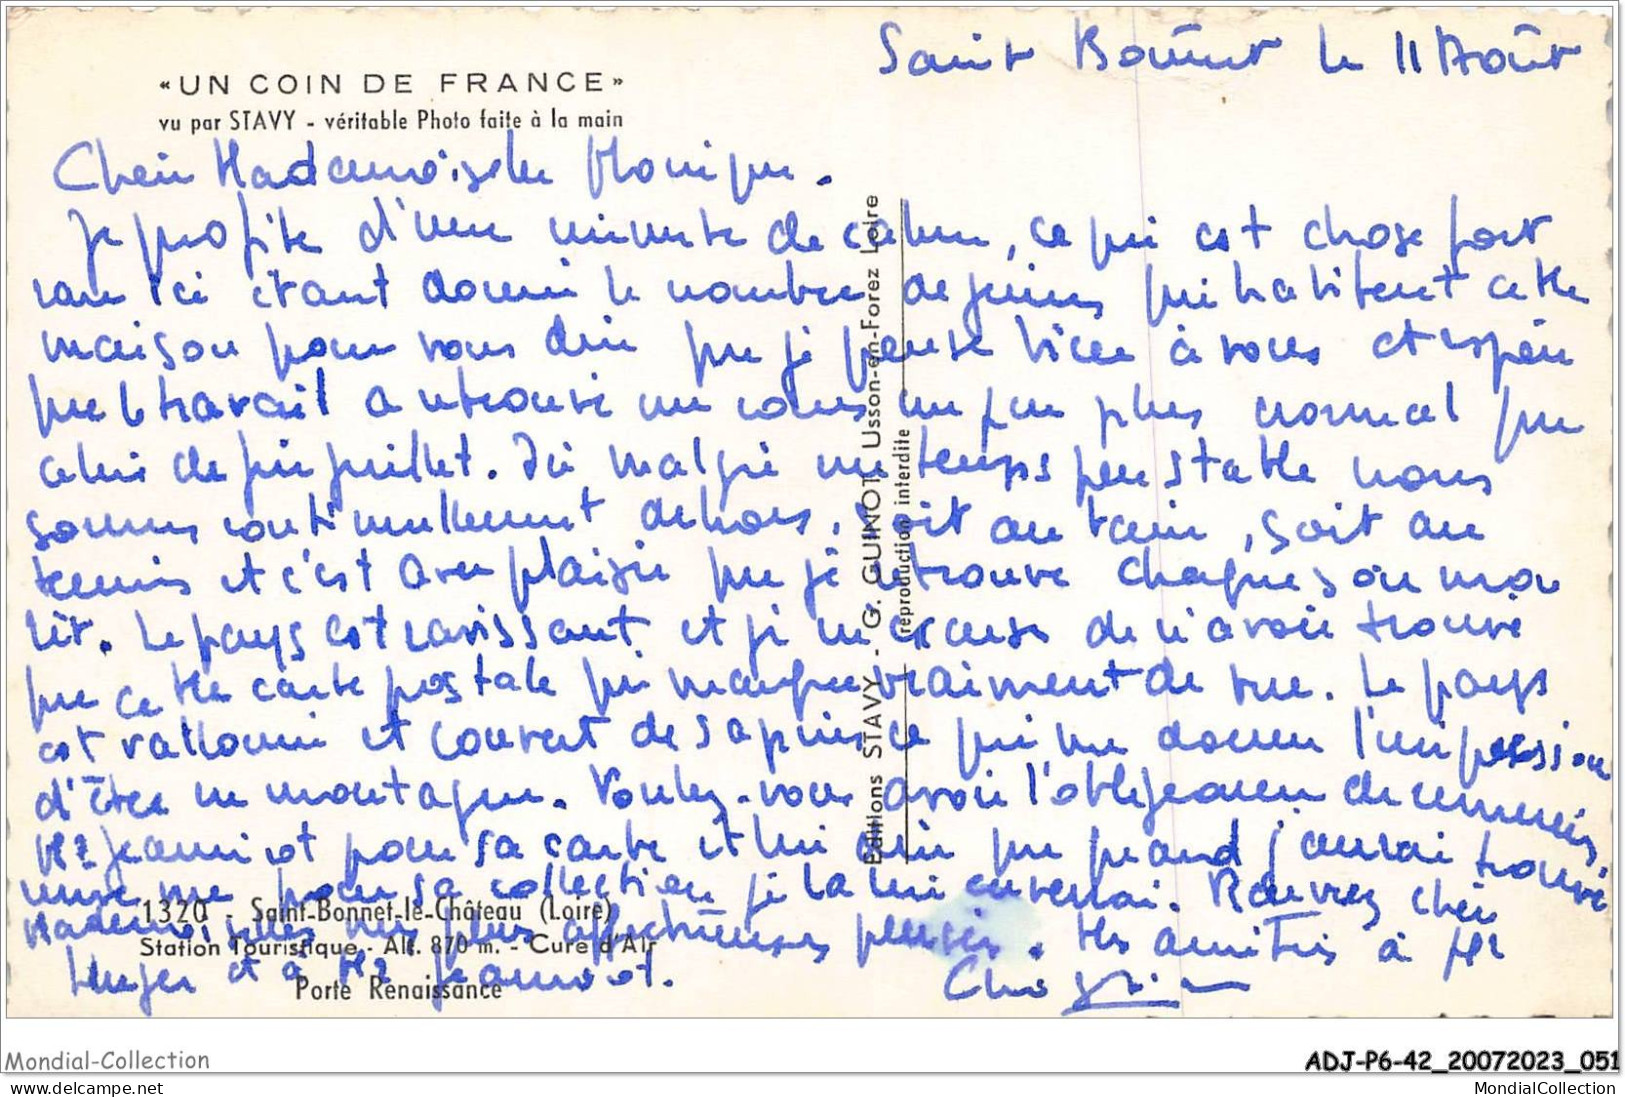 Saint Bonnet le 11 Août
«UN COIN DE FRANCE»
vu par STAVY - véritable Photo faite à la main
Chère Mademoiselle Monique.
Je profite d'une minute de calme, ce qui est chose fort
rare ici étant donné le nombre de jeunes qui habitent cette
maison pour vous dire que je pense bien à vous et espère
que le travail a retrouvé un cours un peu plus normal que
celui de juillet. Ici malgré un temps peu stable nous
sommes continuellement dehors, soit au bain, soit au
tennis et c'est avec plaisir que je retrouve chaque soir mon
lit. Le pays est ravissant et je m'excuse de n'avoir trouvé
que cette carte postale qui manque vraiment de vue. Le pays
est vallonné et couvert de sapins ce qui me donne l'impression
d'être en montagne. Voulez-vous avoir l'obligeance de remercier
Mr Jeannot pour sa carte et lui dire que quand j'aurai trouvé
une pour sa collection je la lui enverrai. Recevez chère
Mademoiselle mes plus affectueuses pensées. Mes amitiés à Mr
et à Mr Jeannot.
1320 - Saint-Bonnet-le-Château (Loire)
Station Touristique - Alt. 870 m. - Cure d'Air
Porte Renaissance
Editions STAVY - G. GUINOT Usson-en-Forez Loire
reproduction interdite
Mondial-Collection
ADJ-P6-42_20072023_051
www.delcampe.net
MondialCollection